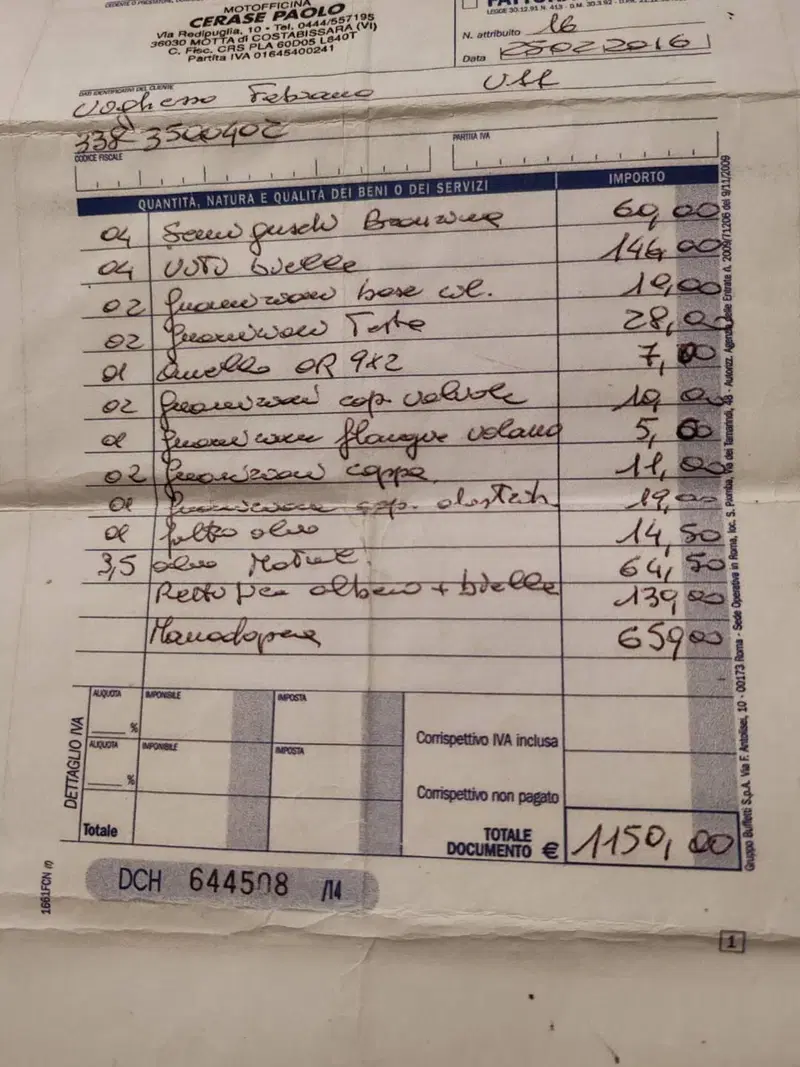 MOTOFFICINA
CERASE PAOLO
Via Redipuglia, 10 - Tel. 0444/557195
36030 MOTTA di COSTABISSARA (VI)
C. Fisc. CRS PLA 60D05 L840T
Partita IVA 01645400241
N. attribuito 16
Data 25022016
DATI IDENTIFICATIVI DEL CLIENTE
338 3500402
CODICE FISCALE
PARTITA IVA
QUANTITÀ, NATURA E QUALITÀ DEI BENI O DEI SERVIZI IMPORTO
04 Semigusci Bronzine 60,00
04 Viti bielle 144,00
02 Guarnizioni base cil. 19,00
02 Guarnizioni Teste 28,00
01 Anello OR 9x2 7,00
02 Guarnizioni cop. valvole 10,00
01 Guarnizione flangue volano 5,00
02 Guarnizioni coppa 11,00
01 Guarnizione cop. 19,00
01 filtro olio 14,50
3,5 olio Motul 64,50
Rettifica albero + bielle 139,00
Manodopera 659,00
DETTAGLIO IVA
ALIQUOTA IMPONIBILE IMPOSTA
%
Corrispettivo IVA inclusa
ALIQUOTA IMPONIBILE IMPOSTA
%
Corrispettivo non pagato
Totale
TOTALE
DOCUMENTO € 1150,00
DCH 644508 /14
1661FCN
1
Gruppo Buffetti S.p.A. Via F. Antolisei, 10 - 00173 Roma - Sede Operativa in Roma, loc. S. Palomba, Via dei Tamarindi, - Autorizz. Agenzia delle Entrate A. 2009/71206 del 9/11/2009